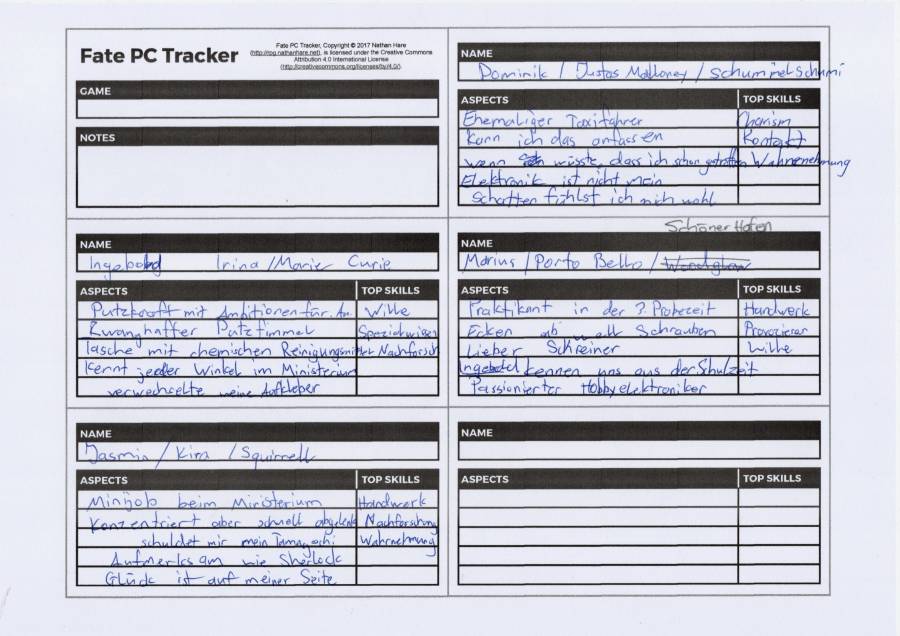 Fate PC Tracker
Fate PC Tracker, Copyright © 2017 Nathan Hare
(http://rpg.nathanhare.net), is licensed under the Creative Commons
Attribution 4.0 International License
(http://creativecommons.org/licenses/by/4.0/).
GAME
NOTES
NAME
Dominik / Justas Malloney / Schummelschumi
ASPECTS TOP SKILLS
Ehemaliger Taxifahrer Charism
Kann ich das anfassen Kontakt
wenn wüsste, dass ich schon Wahrnehmung
Elektronik ist nicht mein
Schatten fühlst ich mich wohl
NAME
Irina / Marie Curie
ASPECTS TOP SKILLS
Putzkraft mit Ambitionen für Wille
Zwanghafter Putzfimmel
Tasche mit chemischen Nachforsch
kennt jeder Winkel im Ministerium
verwechselte meine Aufkleber
Schöner Hafen
NAME
Marius / Porto Bello /
ASPECTS TOP SKILLS
Praktikant in der 3. Probezeit Handwerk
Ecken ab Schrauben
Lieber Schreiner Wille
kennen uns aus der Schulzeit
Passionierter Hobbyelektroniker
NAME
Jasmin / Kira / Squirrell
ASPECTS TOP SKILLS
Minijob beim Ministerium Handwerk
Konzentriert aber schnell abgelenkt Nachforschung
schuldet mir mein Tamagochi Wahrnehmung
Aufmerksam wie Sherlock
Glück ist auf meiner Seite
NAME
ASPECTS TOP SKILLS